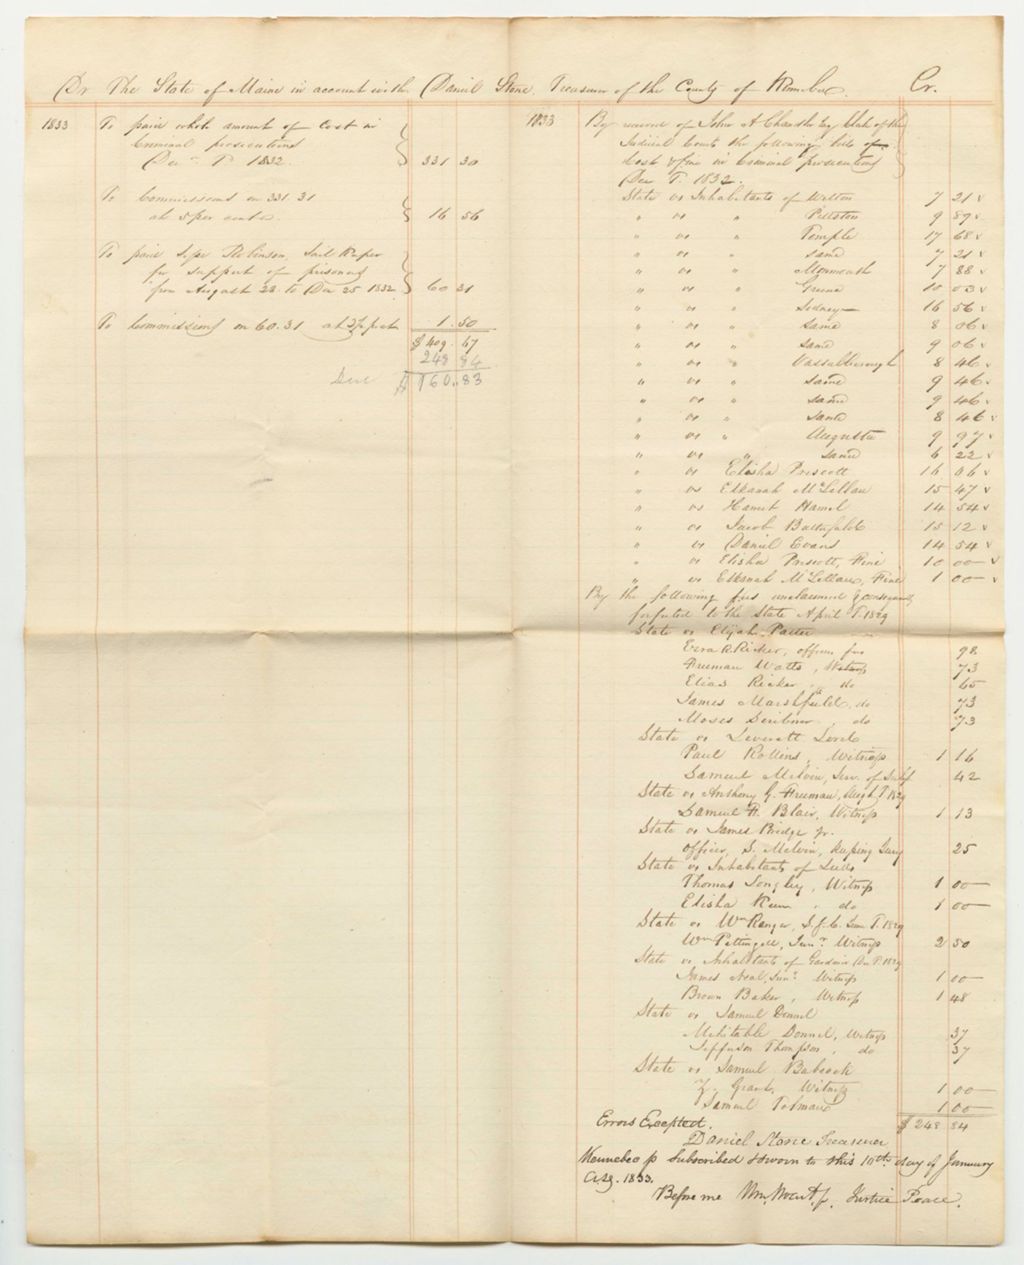 Dr The State of Maine in account with Daniel Stone, Treasurer of the County of Kennebec. Cr.
1833 To paid whole amount of Cost in
Criminal prosecutions
Dec. T. 1832. 331 30
To Commissions on 331 31
at 5 per cent. 16 56
To paid Robinson, Jail Keeper
for support of prisoners
from August 22 to Dec 25 1832 60 31
To Commissions on 60.31 at 2½ pr ct 1.50
$409.67
248 84
Due $160.83
1833 By record of John A Chandler Esq Clerk of the
Judicial Courts the following bills of
Cost & fine in Criminal prosecutions
Dec T. 1832.
State vs Inhabitants of Wilton 7 21
" vs " Pittston 9 89
" vs " Temple 17 68
" vs " same 7 21
" vs " Monmouth 7 88
" vs " Greene 10 03
" vs " Sidney 16 56
" vs " Same 8 06
" vs " Same 9 06
" vs " Vassalborough 8 46
" vs " same 9 46
" vs " same 9 46
" vs " same 8 46
" vs " Augusta 9 97
" vs " same 6 22
" vs Elisha Prescott 16 06
" vs Elkanah McLellan 15 47
" vs Hamel 14 54
" vs Jacob 15 12
" vs Daniel Evans 14 54
" vs Elisha Prescott, Fine 10 00
" vs Elkanah McLellan, Fine 1 00
By the following fees unclaimed &
forfeited to the State April T. 1829
State vs Elijah
Ezra R. Ricker, officers fees 98
Freeman Watts, Witness 73
Elias Ricker " do 65
James Marshfield, do 73
Moses Scribner, do 73
State vs Leverett Lord
Paul Rollins, Witness 1 16
Samuel Melvin, Ser. of 42
State vs Anthony G. Freeman, Augt T 1829
Samuel A. Blair, Witness 1 13
State vs James Bridge jr.
officer, S. Melvin, keeping Jury 25
State vs Inhabitants of Leeds
Thomas Longley, Witness 1 00
Elisha Keen, do 1 00
State vs Wm Ranger, S.J.C. June T. 1829
Wm Pettingell, Junr. Witness 2 50
State vs Inhabitants of Gardiner Au T. 1829
James Neal, Junr. Witness 1 00
Brown Baker, Witness 1 48
State vs Samuel Donnel
Mehitable Donnel, Witness 37
Jefferson Thompson, do 37
State vs Samuel Babcock
Grant, Witness 1 00
Samuel Tolman 1 00
Errors Excepted. $248 84
Daniel Stone Treasurer
Kennebec ss Subscribed & sworn to this 10th day of January
AD. 1833.
Before me Justice Peace.